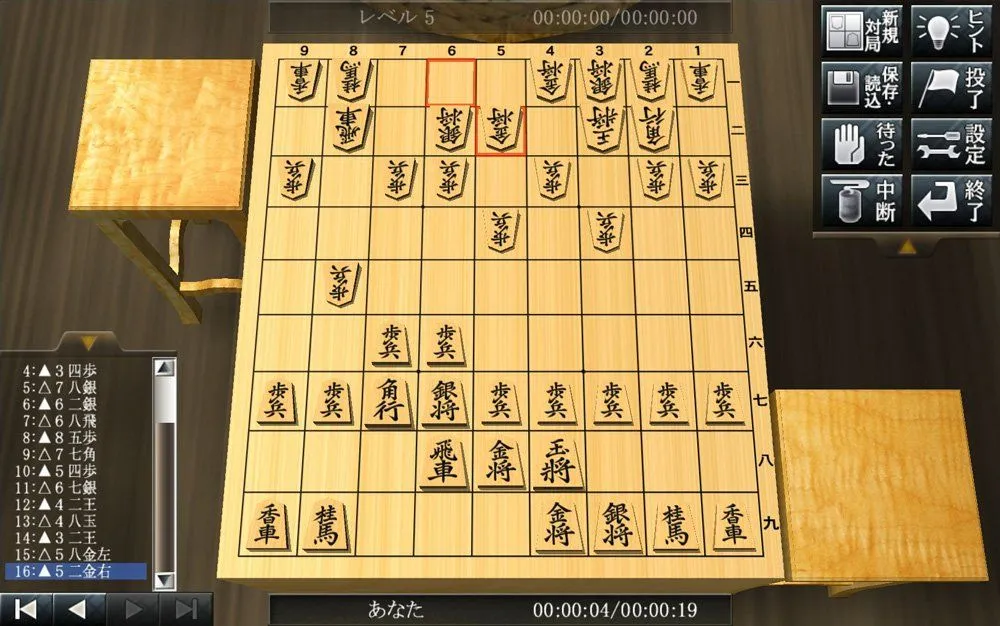 レベル 5 00:00:00/00:00:00
9 8 7 6 5 4 3 2 1
香車 桂馬 金将 銀将 桂馬 香車 一
飛車 銀将 金将 王将 角行 二
歩兵 歩兵 歩兵 歩兵 歩兵 歩兵 三
歩兵 歩兵 四
歩兵 五
歩兵 歩兵 六
歩兵 歩兵 角行 銀将 歩兵 歩兵 歩兵 歩兵 歩兵 七
飛車 金将 玉将 八
香車 桂馬 金将 銀将 桂馬 香車 九
新規対局 ヒント
保存・読込 投了
待った 設定
中断 終了
4:▲3四歩
5:△7八銀
6:▲6二銀
7:△6八飛
8:▲8五歩
9:△7七角
10:▲5四歩
11:△6七銀
12:▲4二王
13:△4八玉
14:▲3二王
15:△5八金左
16:▲5二金右
あなた 00:00:04/00:00:19